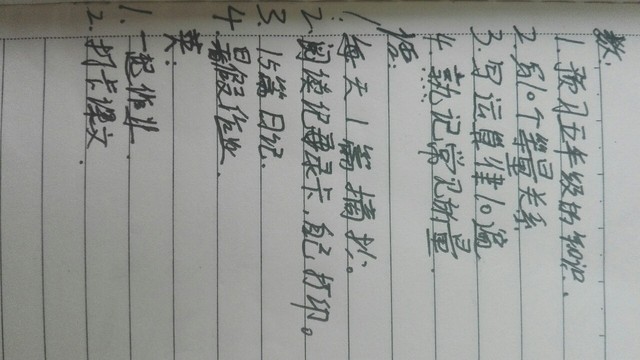 数:
1.预习五年级的知识.
2.写10个等量关系
3.写运算律10遍
4.熟记常见的量.
语:
1.每天1篇摘抄。
2.阅读记录卡,自己打印。
3.15篇日记.
4.暑假作业.
英:
1.一起作业.
2.打卡课文.